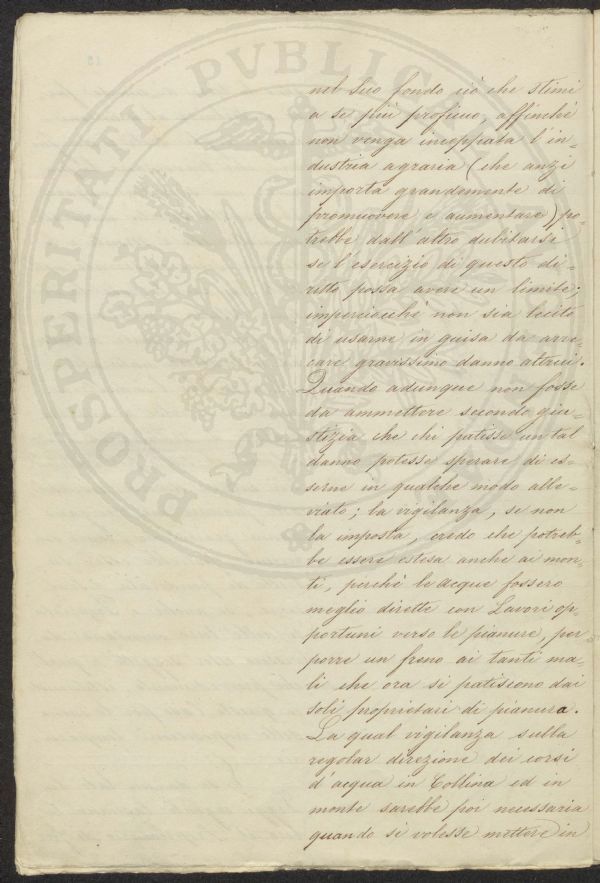 PROSPERITATI PVBLICAE
nel suo fondo ciò che stimi
a se più proficuo, affinchè
non venga inceppata l'in=
dustria agraria (che anzi
importa grandemente di
promuovere e aumentare) po=
trebbe dall'altro dubitarsi
se l'esercizio di questo di=
ritto possa avere un limite;
imperciocchè non sia lecito
di usarne in guisa da arre=
care gravissimo danno altrui.
Quando adunque non fosse
da ammettere secondo giu=
stizia che chi patisse un tal
danno potesse sperare di es=
serne in qualche modo alle=
viato; la vigilanza, se non
la imposta, credo che potreb=
be essere estesa anche ai mon=
ti, perchè le acque fossero
meglio dirette con Lavori op=
portuni verso le pianure, per
porre un freno ai tanti ma=
li che ora si patiscono dai
soli proprietari di pianura.
La qual vigilanza sulla
regolar direzione dei corsi
d'acqua in Collina ed in
monte sarebbe poi necessaria
quando si volesse mettere in